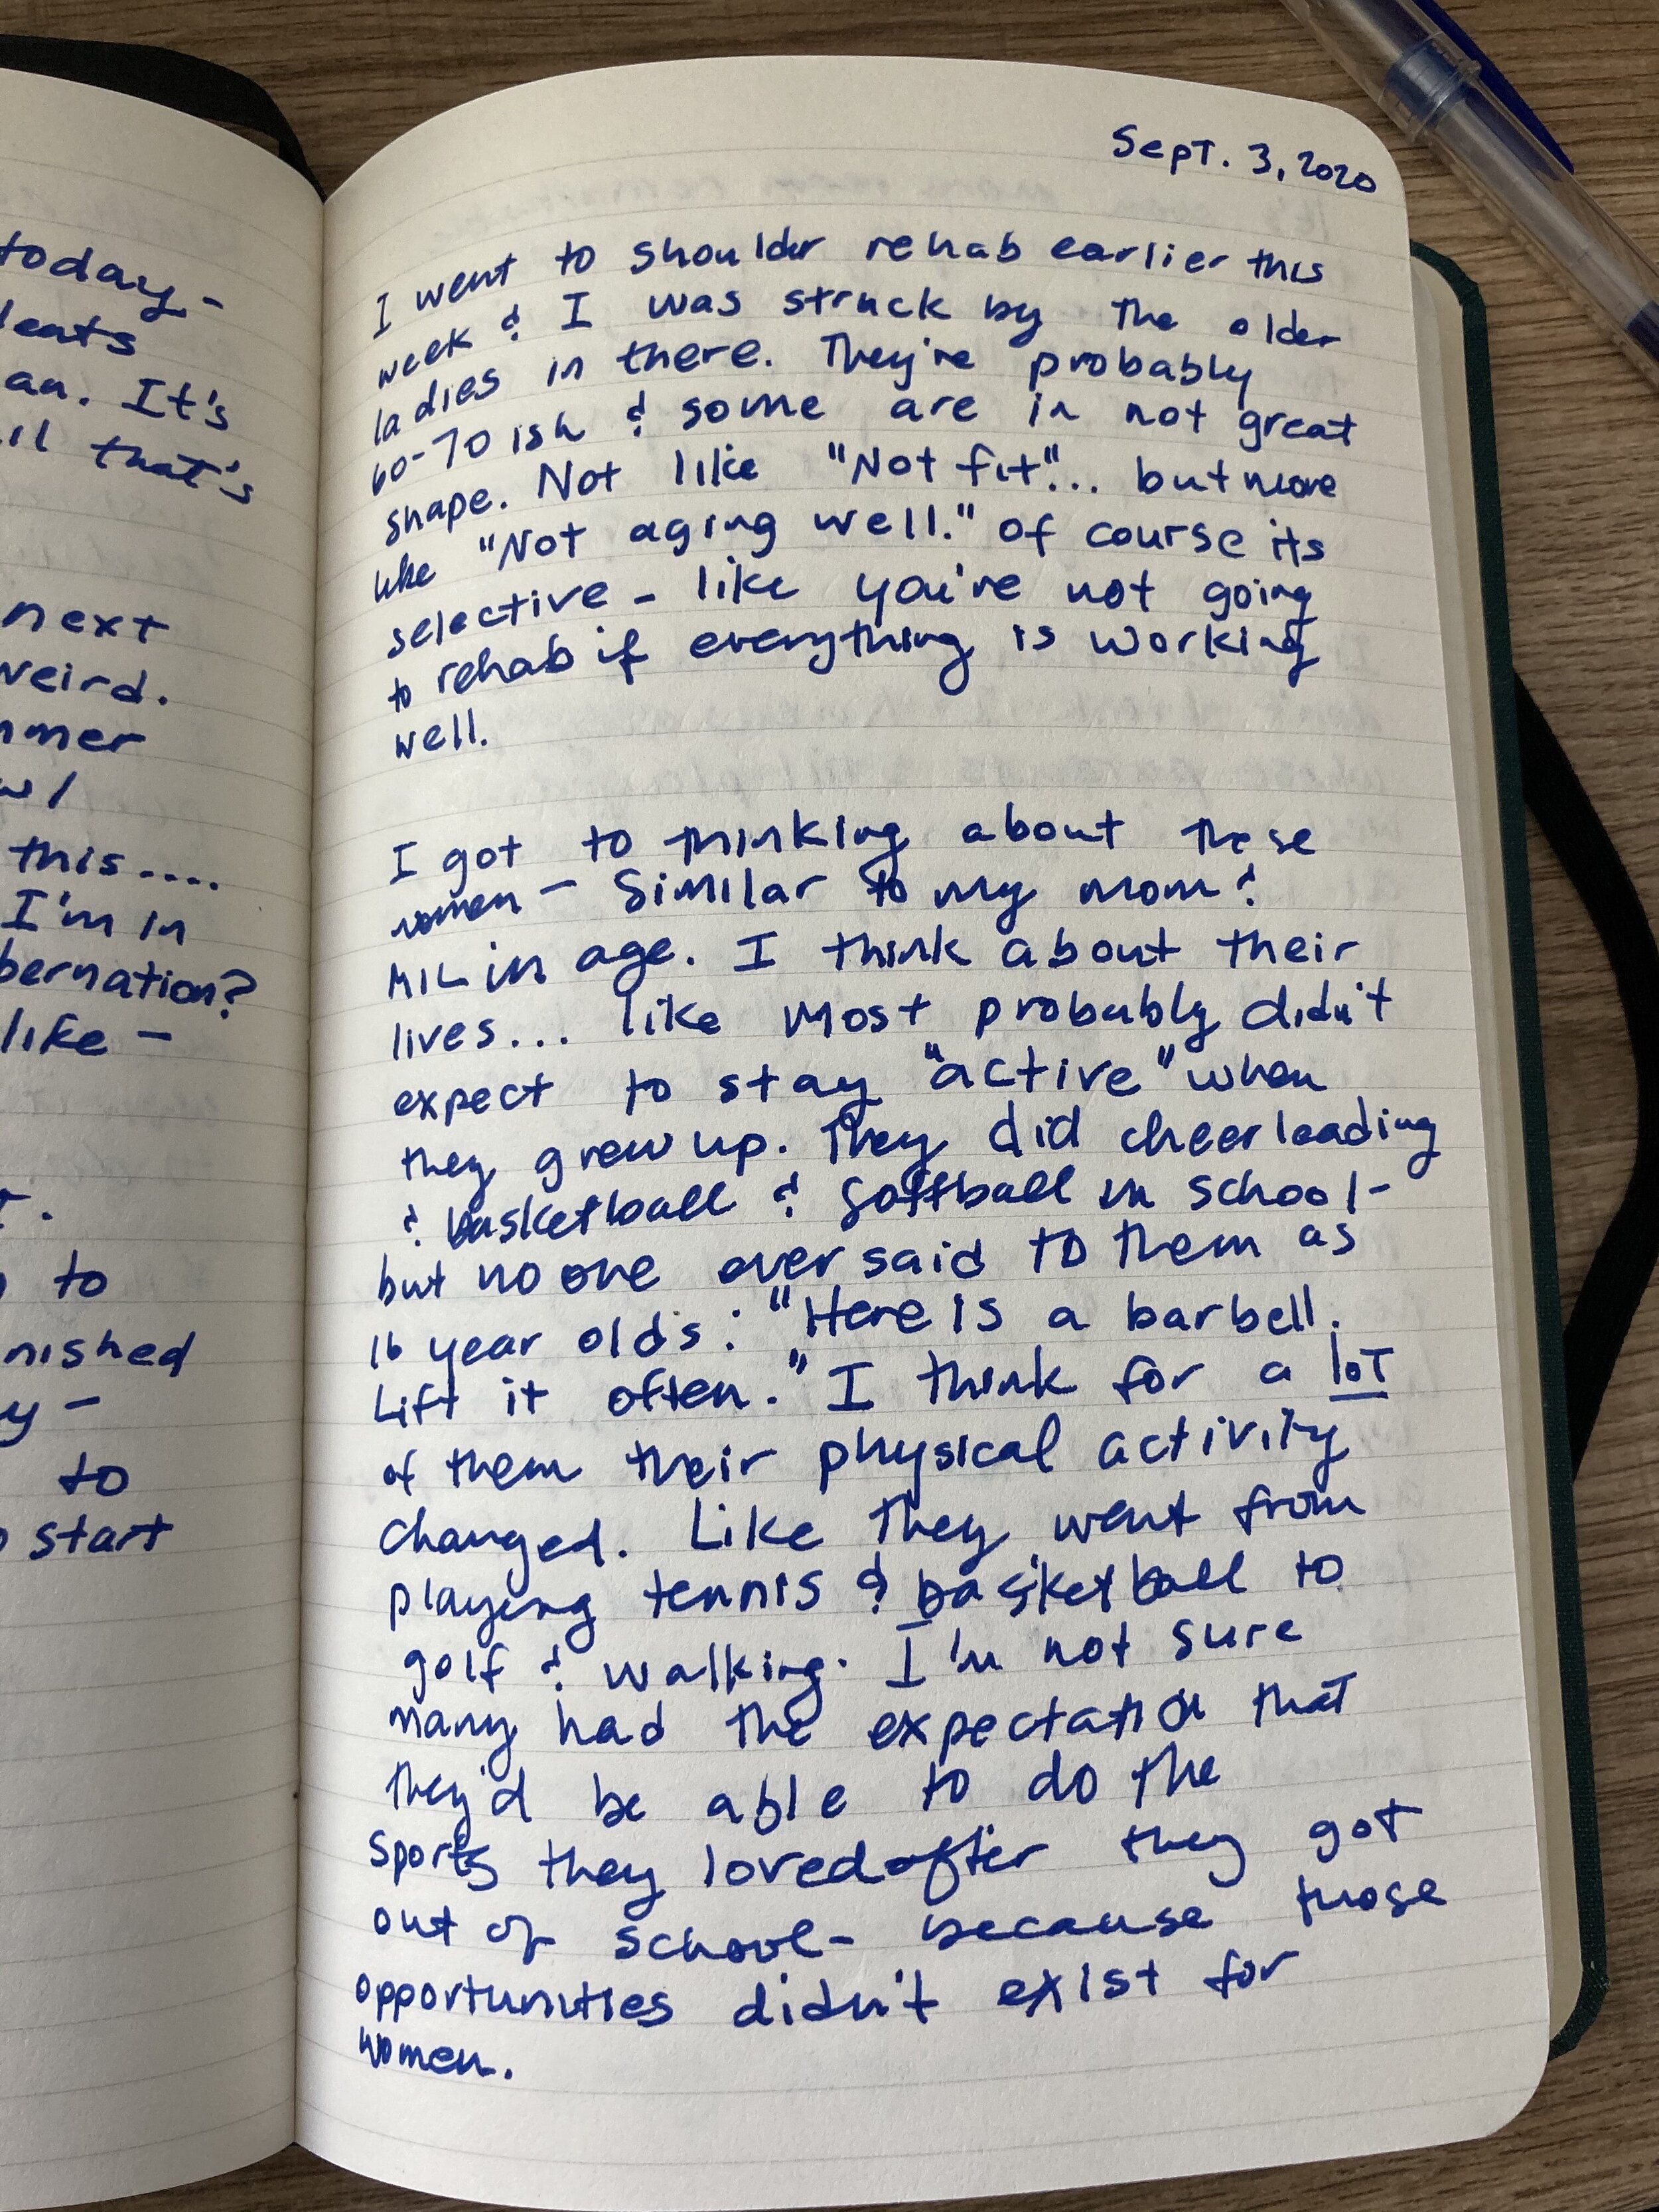 today -
eats
an. It's
il that's
next
weird.
mmer
w/
this....
I'm in
bernation?
like -
T.
to
nished
y -
to
start
Sept. 3, 2020
I went to shoulder rehab earlier this
week & I was struck by the older
ladies in there. They're probably
60-70 ish & some are in not great
shape. Not like "Not fit"... but more
like "Not aging well." of course its
selective - like you're not going
to rehab if everything is working
well.
I got to thinking about these
women - Similar to my mom &
MIL in age. I think about their
lives... like most probably didn't
expect to stay "active" when
they grew up. They did cheerleading
& basketball & softball in school-
but no one ever said to them as
16 year olds: "Here is a barbell.
Lift it often." I think for a lot
of them their physical activity
changed. Like they went from
playing tennis & basketball to
golf & walking. I'm not sure
many had the expectation that
they'd be able to do the
sports they loved after they got
out of school- because those
opportunities didn't exist for
women.